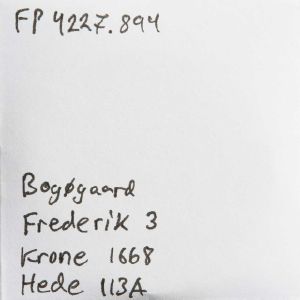 FP 4227.894
Bogøgaard
Frederik 3
Krone 1668
Hede 113A